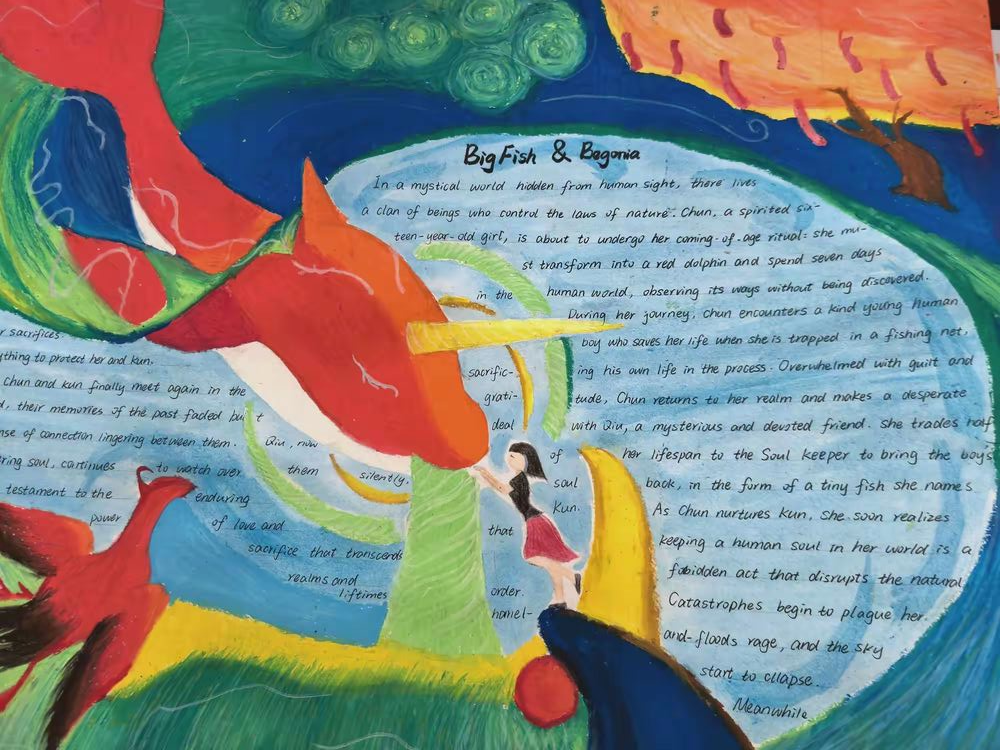 Big Fish & Begonia
In a mystical world hidden from human sight, there lives
a clan of beings who control the laws of nature. Chun, a spirited six-
teen-year-old girl, is about to undergo her coming-of-age ritual: she mu-
st transform into a red dolphin and spend seven days
in the human world, observing its ways without being discovered.
During her journey, Chun encounters a kind young human
boy who saves her life when she is trapped in a fishing net,
sacrific- ing his own life in the process. Overwhelmed with guilt and
grati- tude, Chun returns to her realm and makes a desperate
deal with Qiu, a mysterious and devoted friend. She trades half
of her lifespan to the Soul keeper to bring the boys
soul back, in the form of a tiny fish she names
Kun. As Chun nurtures kun, she soon realizes
that keeping a human soul in her world is a
fobidden act that disrupts the natural
order. Catastrophes begin to plague her.
homel- and-floods rage, and the sky
start to cllapse.
Meanwhile
sacrifices.
to protect her and kun.
Chun and kun finally meet again in the
their memories of the past faded bu t
of connection lingering between them. Qiu, now
soul, continues to watch over them silently,
testament to the enduring
power of love and
sacrifice that transcends
realms and
liftimes